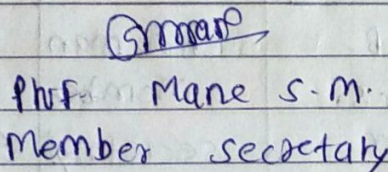 Prof. Mane S.M.
Member secretary